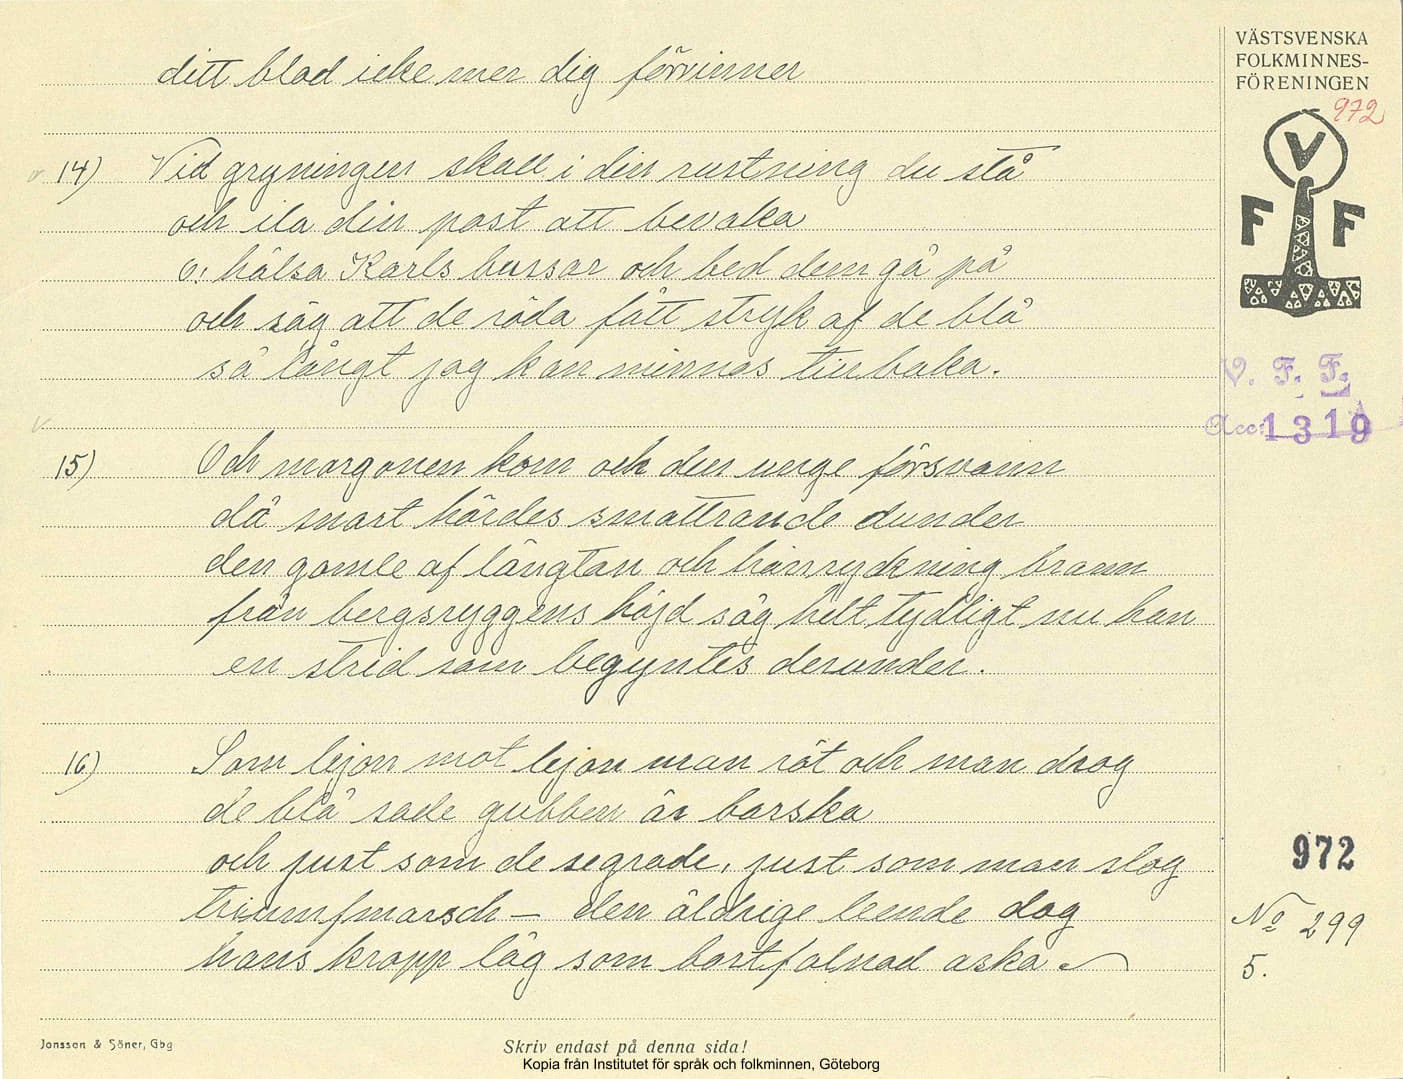 ditt blod icke mer dig förvinner
14) Vid gryningen skall i din rustning du stå
och ila din post att bevaka
o, hälsa Karls bussar och bed dem gå på
och säg att de röda fått stryk af de blå
så långt jag kan minnas tillbaka.
15) Och morgonen kom och den unge försvann
då snart hördes smattrande dunder
den gamle af längtan och hänryckning brann
från bergsryggens höjd såg helt tydligt nu han
en strid som begyntes derunder.
16) Som lejon mot lejon man röt och man drog
de blå sade gubben är barska
och just som de segrade, just som man slog
triumfmarsch – den åldrige leende dog
hans kropp låg som bortfalnad aska.
VÄSTSVENSKA
FOLKMINNES-
FÖRENINGEN
972
V
F F
V. F. F.
Acc: 1319
972
No 299
5.
Jonsson & Söner, Gbg
Skriv endast på denna sida!
Kopia från Institutet för språk och folkminnen, Göteborg